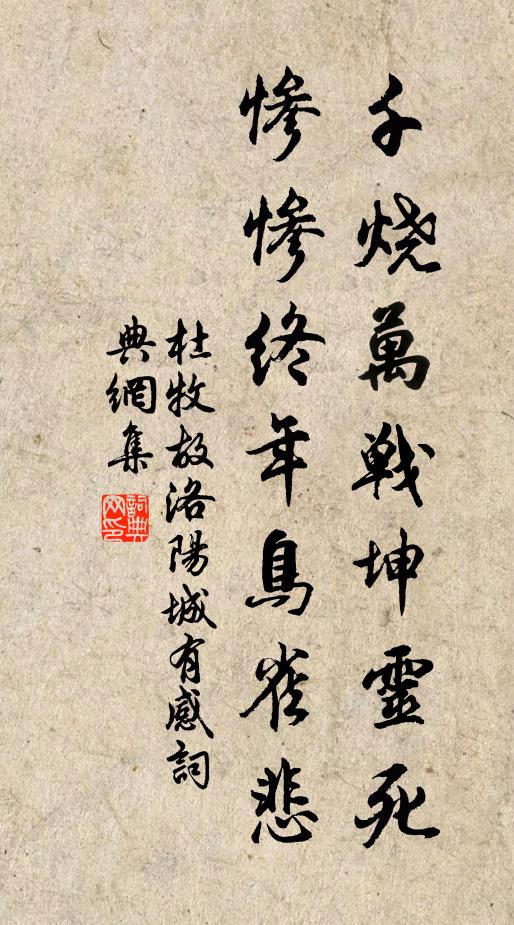 千燒萬戰坤靈死
慘慘終年鳥雀悲
杜牧故洛陽城有感詞
典網集
詞典網印